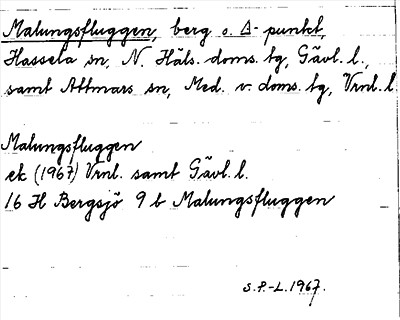 Malungsfluggen, berg o. Δ-punkt,
Hassela sn, N. Häls. doms. tg, Gävl. l.,
samt Attmars sn, Med. v. doms. tg, Vrnl. l.
Malungsfluggen
ek (1967) Vrnl. samt Gävl. l.
16 H Bergsjö 9 b Malungsfluggen
S.P.-L. 1967.